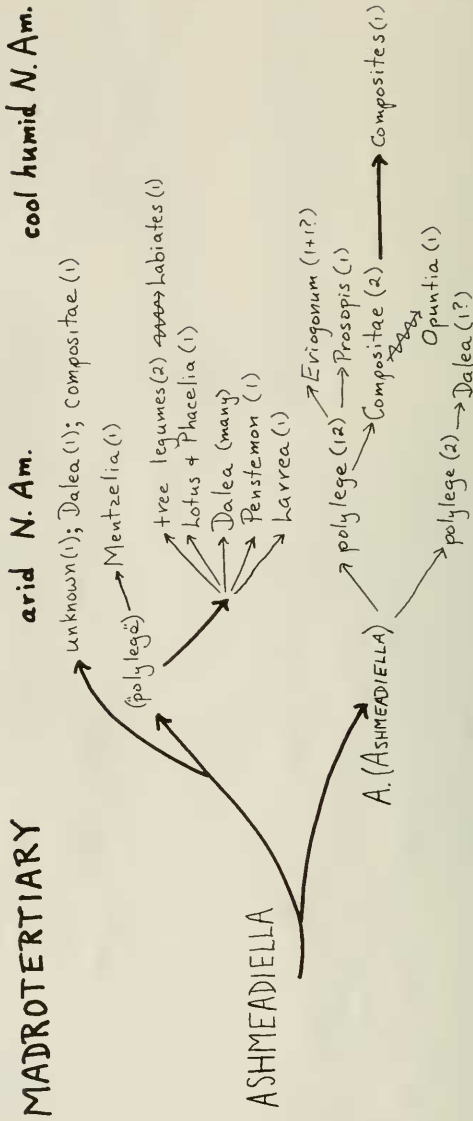 MADROTERTIARY
arid N. Am.
cool humid N. Am.
unknown (1); Dalea (1); Compositae (1)
("polylege") Mentzelia (1)
tree legumes (2) Labiates (1)
Lotus + Phacelia (1)
Dalea (many)
Penstemon (1)
Larrea (1)
ASHMEADIELLA
polylege (12) Eriogonum (1+1?)
Prosopis (1)
Compositae (2) Composites (1)
Opuntia (1)
A. (ASHMEADIELLA)
polylege (2) Dalea (1?)